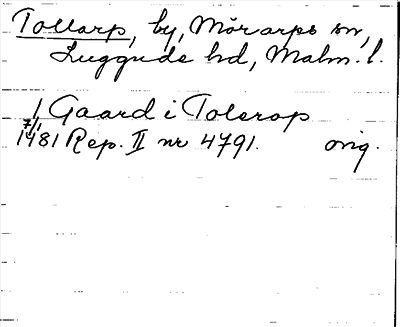 Tollarp, by, Mörarps sn,
Luggude hd, Malm. l.
1 Gaard i Tolerop
7/1
1481 Rep. II nr 4791. orig.